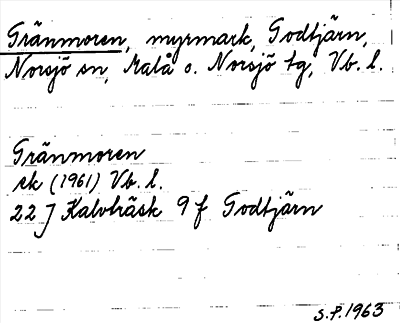 Gränmoren, myrmark, Godtjärn,
Norsjö sn, Malå o. Norsjö tg, Vb. l.
Gränmoren
rk (1961) Vb. l.
22 J Kalvträsk 9 f Godtjärn
S.P. 1963